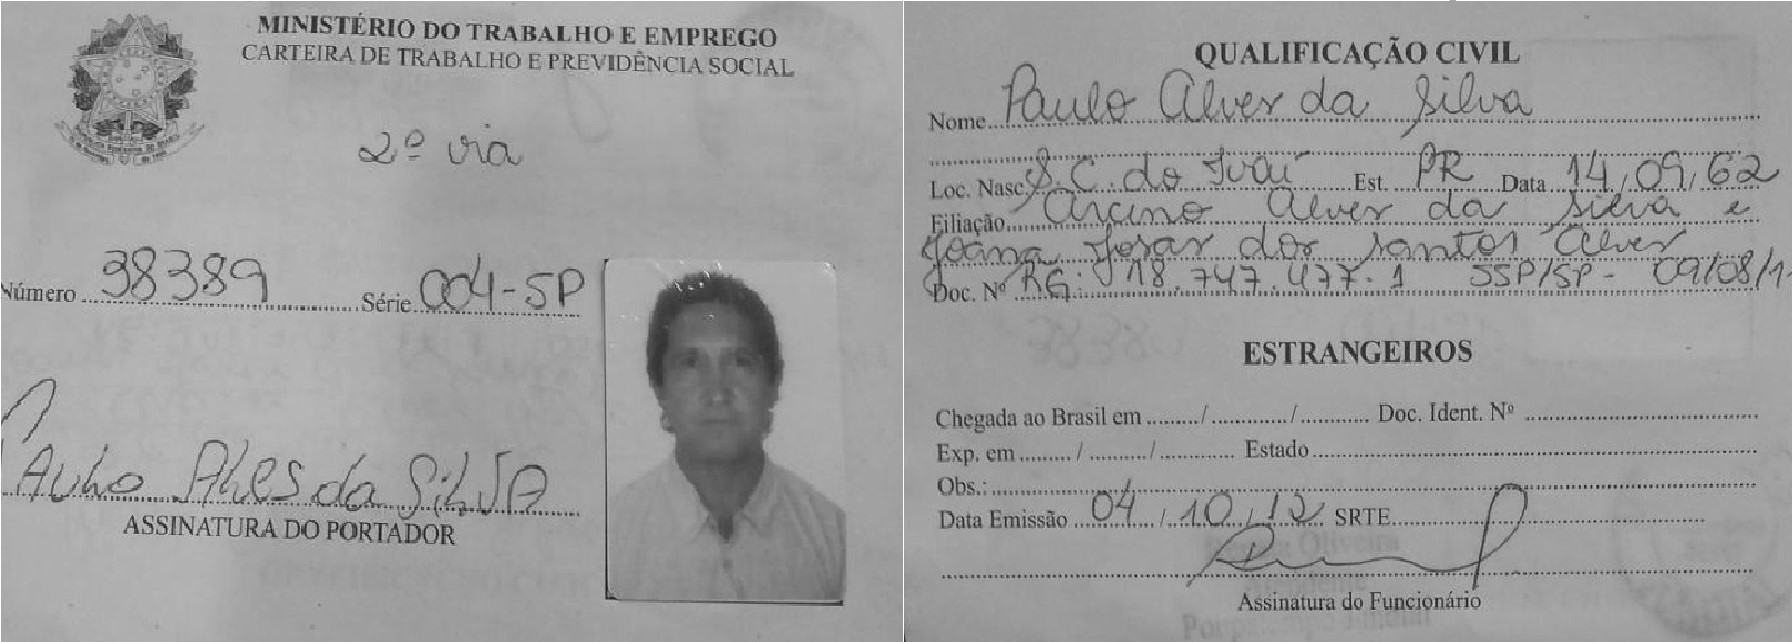 MINISTÉRIO DO TRABALHO E EMPREGO
CARTEIRA DE TRABALHO E PREVIDÊNCIA SOCIAL
2ª via
Número 38389 Série 004-SP
Paulo Alves da Silva
ASSINATURA DO PORTADOR
QUALIFICAÇÃO CIVIL
Nome Paulo Alves da Silva
Loc. Nasc. S.C. do Ivaí Est. PR Data 14/09/62
Filiação Alves da Silva e
Joana dos Santos Alves
Doc. Nº RG: 18.747.477-1 SSP/SP - 09/08/1
ESTRANGEIROS
Chegada ao Brasil em ......../............../............ Doc. Ident. Nº
Exp. em ........ / .......... /............. Estado
Obs.:
Data Emissão 04/10/12 SRTE
Assinatura do Funcionário